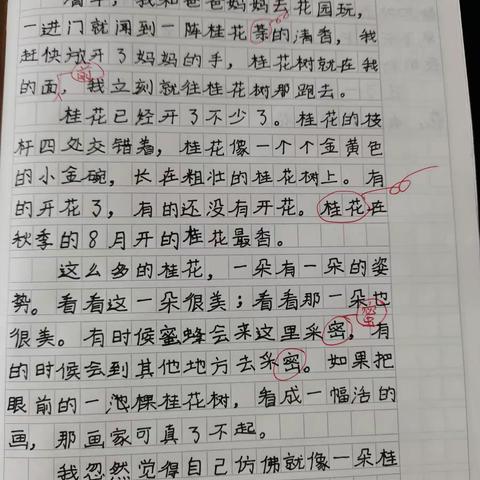 清早，我和爸爸妈妈去花园玩，
一进门就闻到一阵桂花的清香，我
赶快放开了妈妈的手，桂花树就在我
的面，我立刻就往桂花树那跑去。
前
桂花已经开了不少了。桂花的枝
杆四处交错着，桂花像一个个金黄色
的小金碗，长在粗壮的桂花树上。有
的开花了，有的还没有开花。桂花在
秋季的8月开的桂花最香。
这么多的桂花，一朵有一朵的姿
势。看看这一朵很美；看看那一朵也
很美。有时候蜜蜂会来这里采密，有
蜜
的时候会到其他地方去采密。如果把
眼前的一池棵桂花树，看成一幅活的
画，那画家可真了不起。
我忽然觉得自己仿佛就像一朵桂